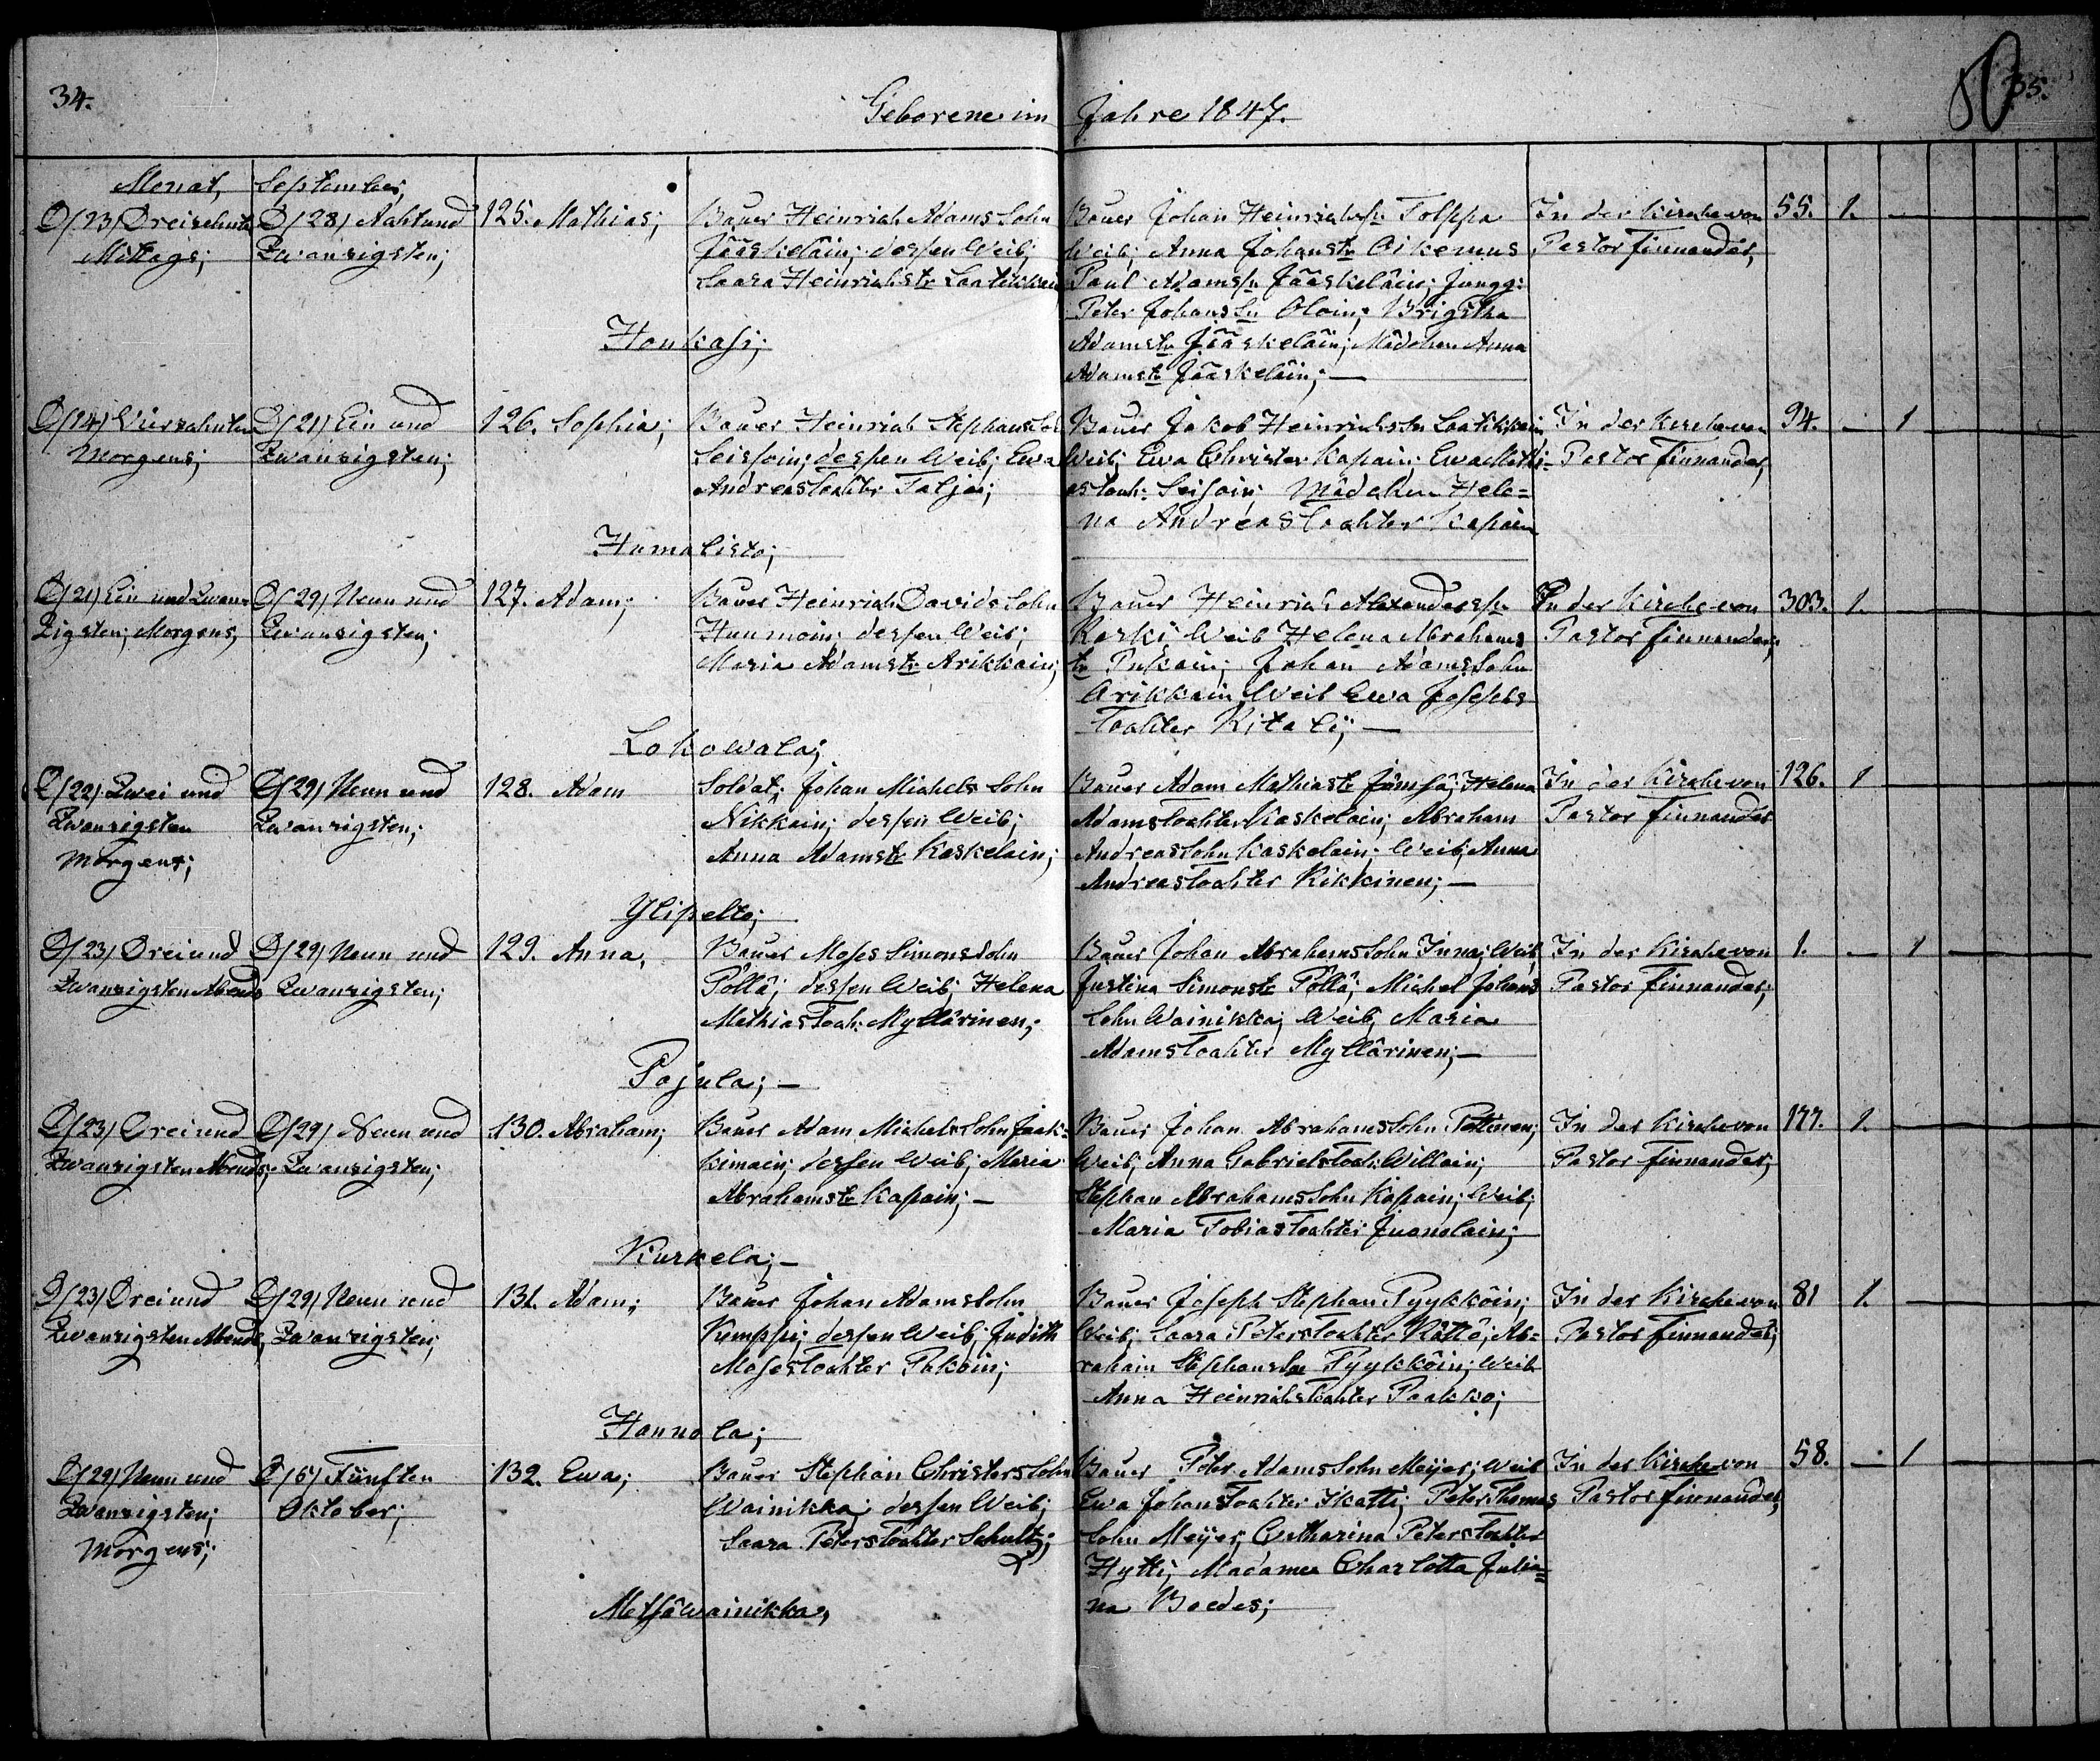 34.
35.
Geborene im Jahre 1847.
Monat, September,
D/23/ Dreizehnten Mittags;
D/28/ Acht und Zwanzigsten;
125. Mathias;
Bauer Heinrich Adams Sohn
Jääskeläin; dessen Weib;
Saara Heinrichstr Laatikkain
Bauer Johan Heinrichssn Tolppa
Weib; Anna Johanstr Oikemus
Paul Adamssn Jääskeläin; Jungg:
Peter Johanssn Oloin; Brigitha
Adamstr Jääskeläin; Mädchen Anna
Adamstr Jääskeläin; —
In der Kirche von
Pastor Finnander,
55. 1. —
Honkasi;
D/14/ Vierzehnten
Morgens;
D/21/ Ein und
Zwanzigsten;
126. Sophia;
Bauer Heinrich Stephans Soh
Seisoin; dessen Weib; Ewa
Andreas Tochter Talja;
Bauer Jakob Heinrichssn Laatikkain
Weib; Ewa Christer Kapain; Ewa Mathi-
astoch: Seisoin; Mädchen Hele=
na Andreas Tochter Kapain
In der Kirche von
Pastor Finnander,
94. — 1
Humalisto;
D/21/ Ein und Zwan-
zigsten; Morgens;
D/29/ Neun und
Zwanzigsten;
127. Adam;
Bauer Heinrich Davids Sohn
Hunmoin; dessen Weib;
Maria Adamstr Arikkain;
Bauer Heinrich Alexanderssn
Koski Weib Helena Abrahams
tr Pukain; Johan Adams Sohn
Arikkain Weib Ewa Josephs
Tochter Kitati; —
In der Kirche von
Pastor Finnander;
303. 1.
Lokowala;
D/22/ Zwei und
Zwanzigsten
Morgens;
D/29/ Neun und
Zwanzigsten;
128. Adam
Soldat: Johan Michels Sohn
Nikkain; dessen Weib;
Anna Adamstr Kaskelain;
Bauer Adam Mathiastr Jämsä; Helena
Adamstochter Kaskelain; Abraham
Andreas Sohn Kaskelain; Weib; Anna
Andreas Tochter Kikkinen; —
In der Kirche von
Pastor Finnander
126. 1
Ylipelto;
D/23/ Drei und
Zwanzigsten Abends
D/29/ Neun und
Zwanzigsten;
129. Anna,
Bauer Moses Simons Sohn
Pöllä; dessen Weib; Helena
Mathias Toch: Myllärinen;
Bauer Johan Abrahams Sohn Inna; Weib
Justina Simonstr Pöllä; Michel Johans
Sohn Wainikka; Weib, Maria
Adams Tochter Myllärinen; —
In der Kirche von
Pastor Finnander;
1. — 1
Pajula; —
D/23/ Drei und
Zwanzigsten Abends;
D/29/ Neun und
Zwanzigsten;
130. Abraham;
Bauer Adam Michels Sohn Jaak-
kimain; dessen Weib; Maria
Abrahamstr Kapain; —
Bauer Johan Abrahams Sohn Pottinen;
Weib; Anna Gabriels Toch: Willain;
Stephan Abrahams Sohn Kapain; Weib;
Maria Tobias Tochter Juonolain;
In der Kirche von
Pastor Finnander;
177. 1.
Kurkela; —
D/23/ Drei und
Zwanzigsten Abends,
D/29/ Neun und
Zwanzigsten;
131. Adam;
Bauer Johan Adams Sohn
Kemppi; dessen Weib; Judith
Moses Tochter Pukain;
Bauer Joseph Stephan Pyykköin;
Weib; Saara Peters Tochter Rättö; Ab=
raham Stephanssn Pyykköin; Weib
Anna Heinrichs Tochter Paakko;
In der Kirche von
Pastor Finnander;
81 1.
Hannola;
D/29/ Neun und
Zwanzigsten;
Morgens;
D/5/ Fünften
Oktober;
132. Ewa;
Bauer Stephan Christers Sohn
Wainikka; dessen Weib;
Saara Peters Tochter Schultz;
Bauer Peter Adams Sohn Meijer; Weib
Ewa Johans Tochter Skatti; Peter Thomas
Sohn Meijer; Catharina Peters Tochter
Hytti; Madame Charlotta Julia=
na Boedes;
In der Kirche von
Pastor Finnander,
58. — 1
Metsäwainikka,